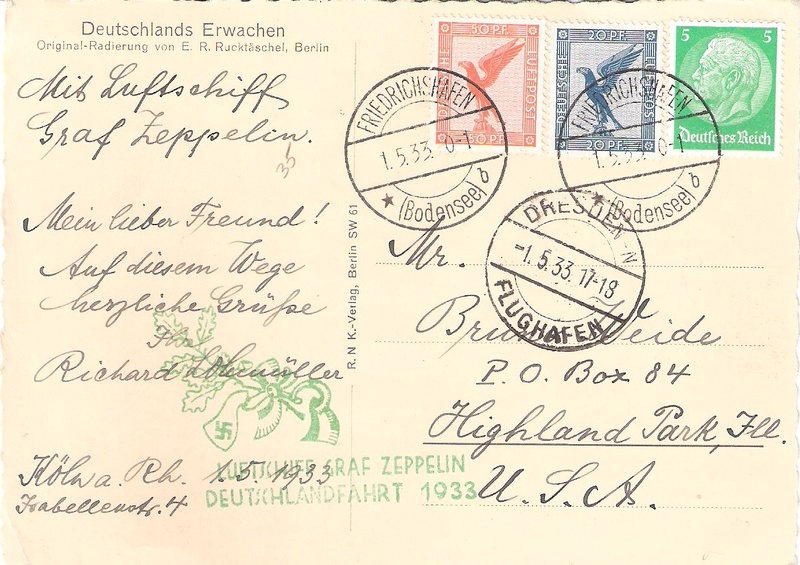 Deutschlands Erwachen
Original-Radierung von E. R. Rucktäschel, Berlin
Mit Luftschiff
Graf Zeppelin.
35
Mein lieber Freund!
Auf diesem Wege
herzliche Grüße
Ihr
Richard
Köln a. Rh. 1.5.1933
Isabellenstr. 4
LUFTSCHIFF GRAF ZEPPELIN
DEUTSCHLANDFAHRT 1933
R. N K.-Verlag, Berlin SW 61
50 PF. 50 PF.
DEUTSCHE LUFTPOST
20 PF. 20 PF.
DEUTSCHE LUFTPOST
5 5
Deutsches Reich
FRIEDRICHSHAFEN
1.5.33. 0-1
(Bodensee) b
FRIEDRICHSHAFEN
1.5.33. 0-1
(Bodensee) b
DRESDEN N
-1.5.33.17-18
FLUGHAFEN
Mr.
Bruno Weide
P. O. Box 84
Highland Park, Ill.
U. S. A.